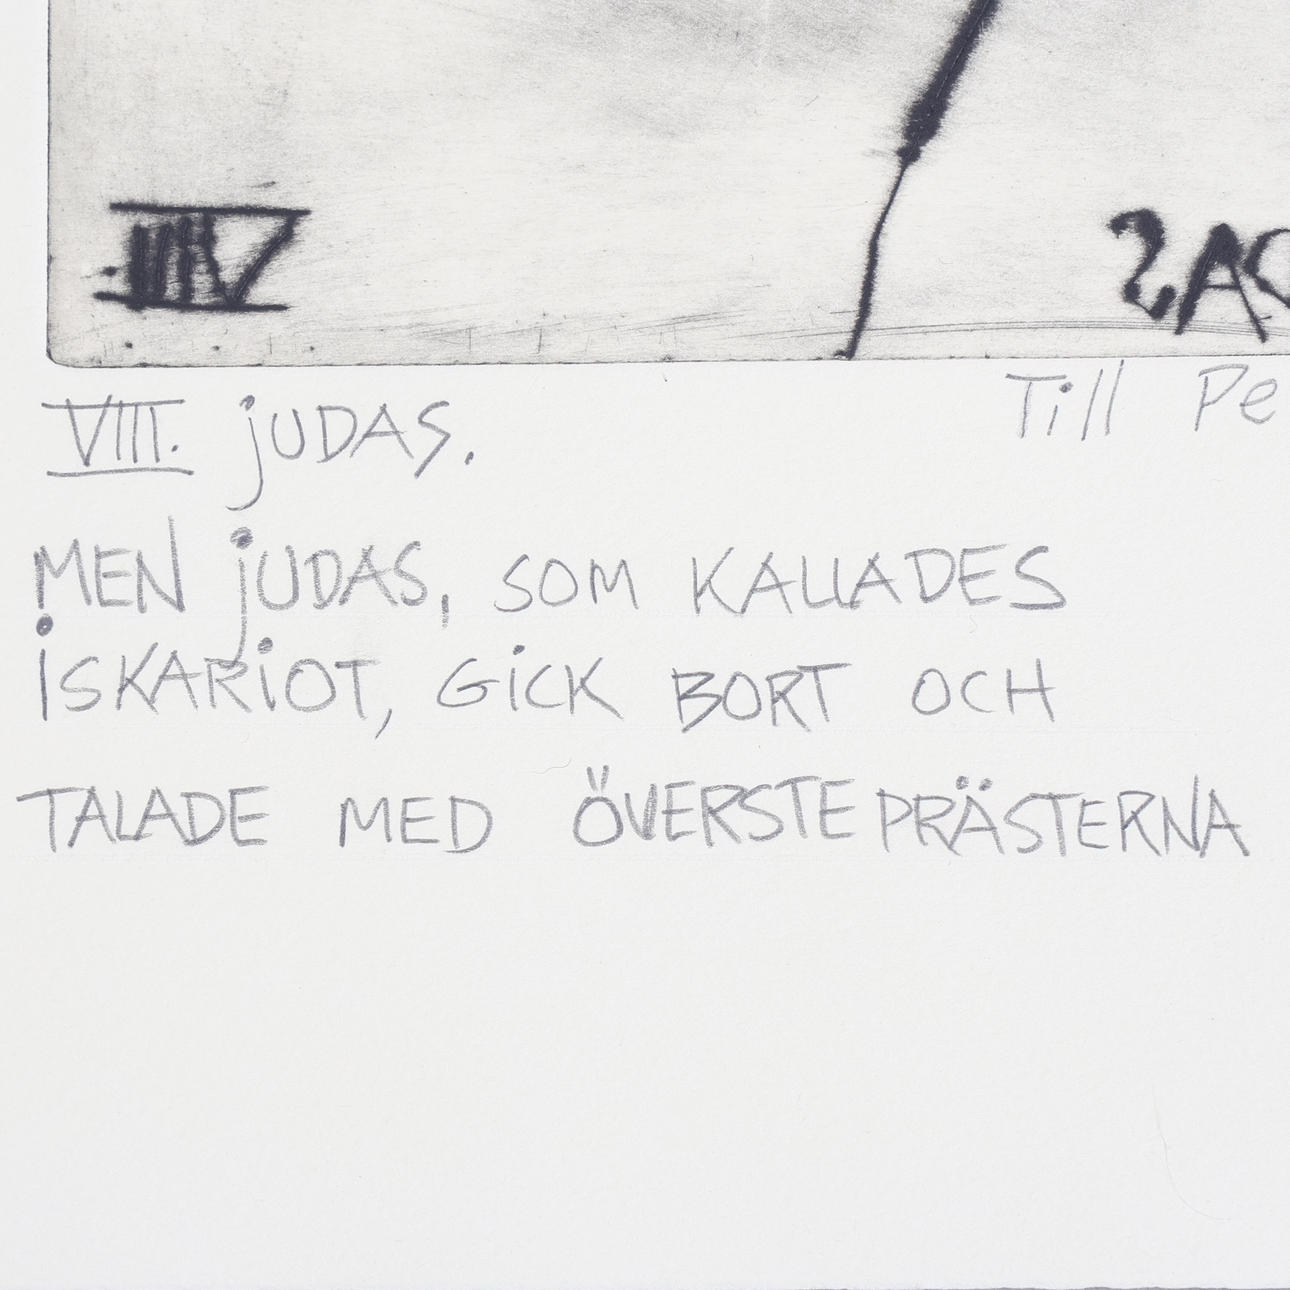 VIII. jUDAS.
Till Pe
MEN jUDAS, SOM KALLADES
iSKARiOT, GiCK BORT OCH
TALADE MED ÖVERSTE PRÄSTERNA